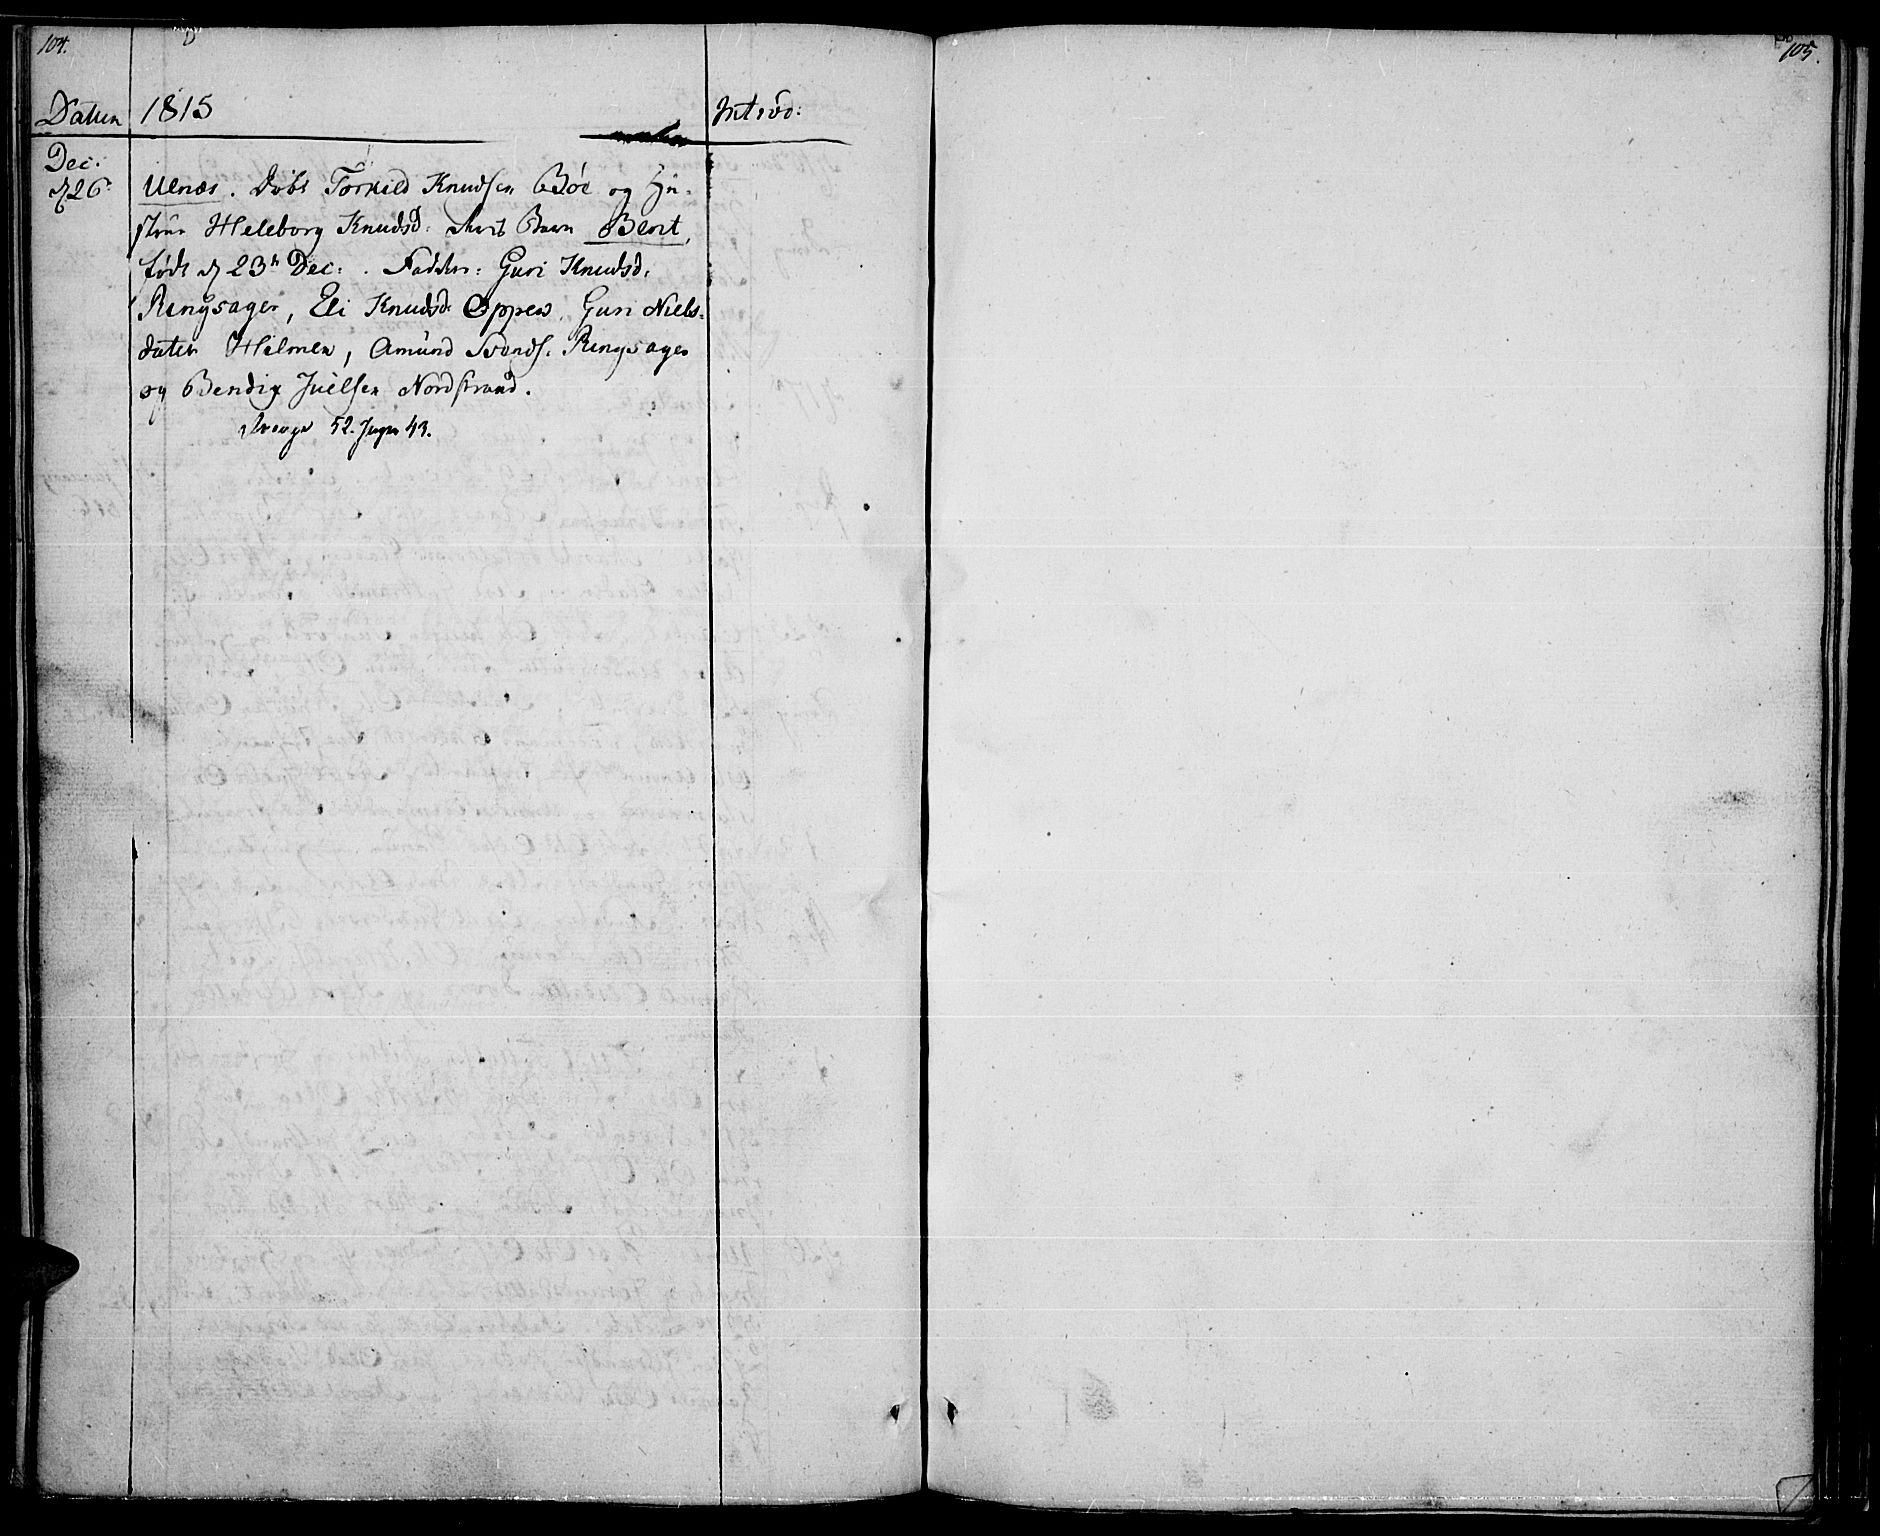 104.
Datum 1815 Introd:
Dec.
d 26 Ulnæs. Døbt Torkild Knudsen Bøe og Hu-
strue Helleborg Knudsd: Barn Berit,
født d 23de Dec: . Faddere: Guri Knudsd.
Ringsager, Eli Knudsd. Oppen, Guri Niels-
datter Hilmen, Amund Svends. Ringsager
og Bendix Juelsen Nordstrand.
Drenge 52. Piger 43.
105.